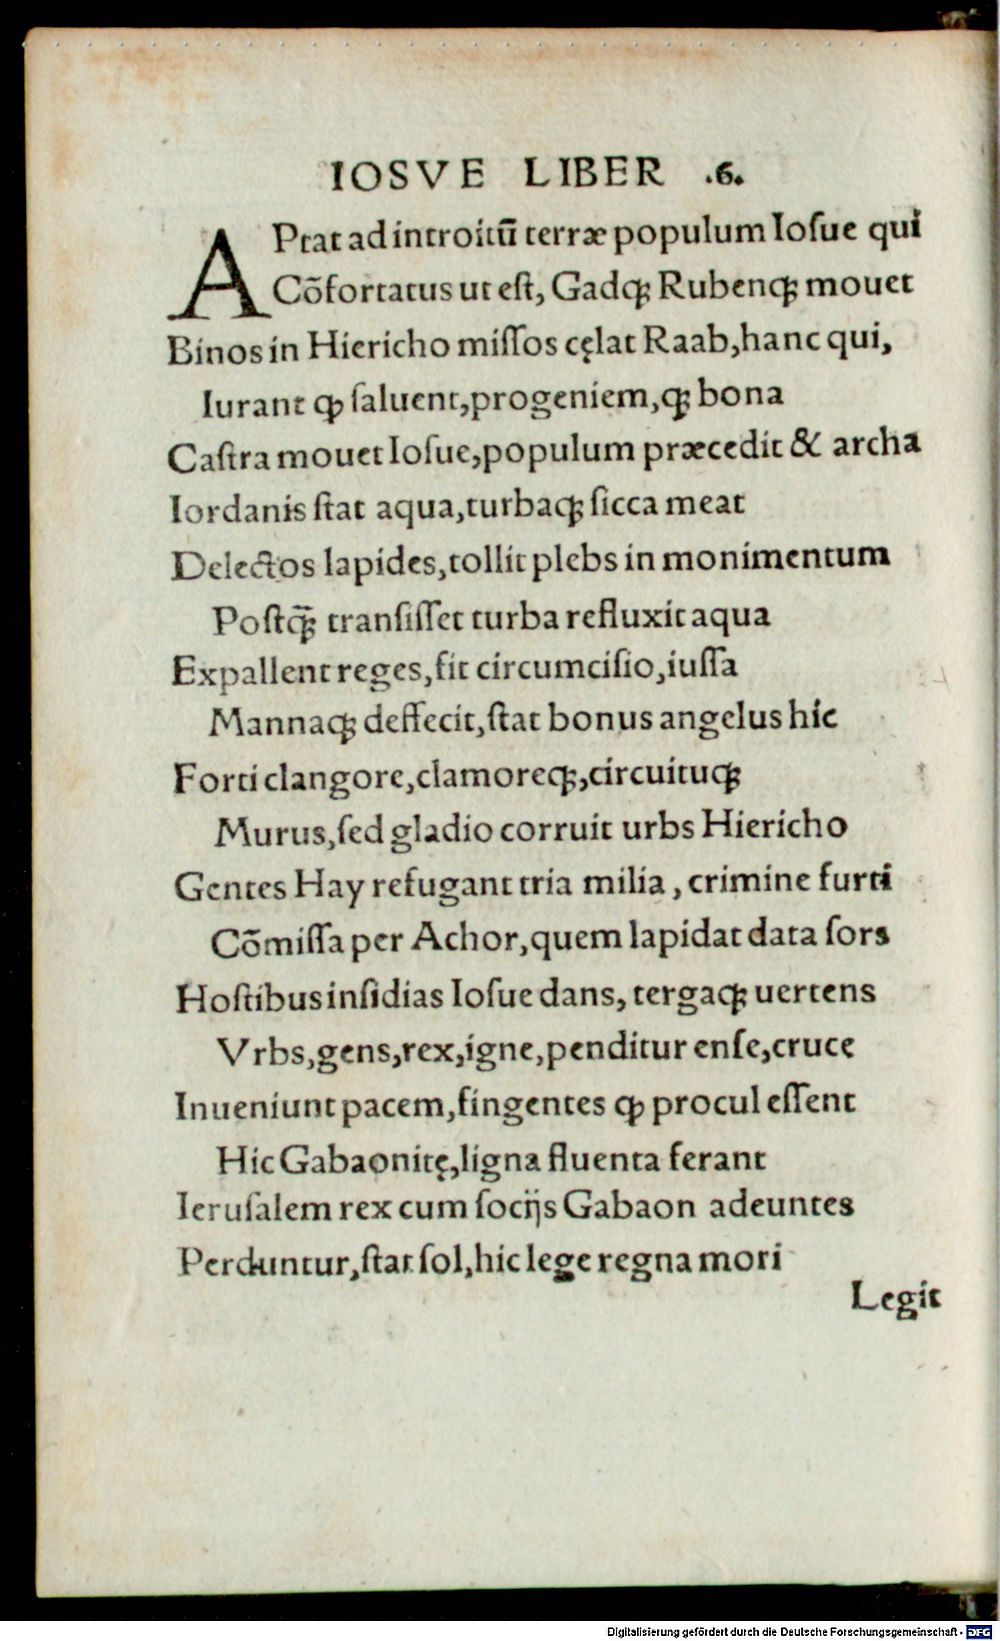 IOSVE LIBER .6.
APtat ad introitū terræ populum Ioſue qui
Cōfortatus ut eſt, Gadqꝫ Rubenqꝫ mouet
Binos in Hiericho miſſos cęlat Raab,hanc qui,
Iurant ꝙ ſaluent,progeniem,qꝫ bona
Caſtra mouet Ioſue,populum præcedit & archa
Iordanis ſtat aqua,turbaqꝫ ſicca meat
Delectos lapides,tollit plebs in monimentum
Poſtq̄ꝫ tranſiſſet turba refluxit aqua
Expallent reges,fit circumciſio,iuſſa
Mannaqꝫ deffecit,ſtat bonus angelus hic
Forti clangore,clamoreqꝫ,circuituqꝫ
Murus,ſed gladio corruit urbs Hiericho
Gentes Hay refugant tria milia , crimine furti
Cōmiſſa per Achor,quem lapidat data ſors
Hoſtibus inſidias Ioſue dans, tergaqꝫ uertens
Vrbs,gens,rex,igne,penditur enſe,cruce
Inueniunt pacem,fingentes ꝙ procul eſſent
Hic Gabaonitę,ligna fluenta ferant
Ieruſalem rex cum ſocijs Gabaon adeuntes
Perduntur,ſtat ſol,hic lege regna mori
Legit
Digitalisierung gefördert durch die Deutsche Forschungsgemeinschaft - DFG